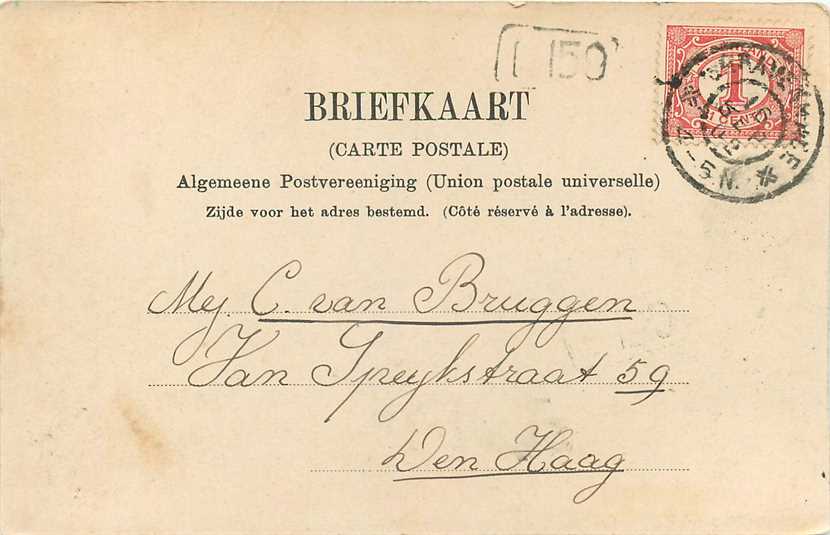 150
1
BRIEFKAART
(CARTE POSTALE)
Algemeene Postvereeniging (Union postale universelle)
Zijde voor het adres bestemd. (Côté réservé à l'adresse).
Mej. C. van Bruggen
Van Speykstraat 59
Den Haag